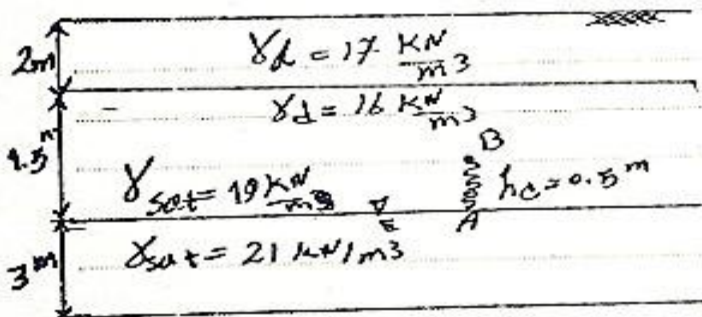 2m
γd = 17 KN/m3
γd = 16 KN/m3
1.5m
B
γsat = 19 KN/m3
hc = 0.5 m
A
γsat = 21 kN/m3
3m